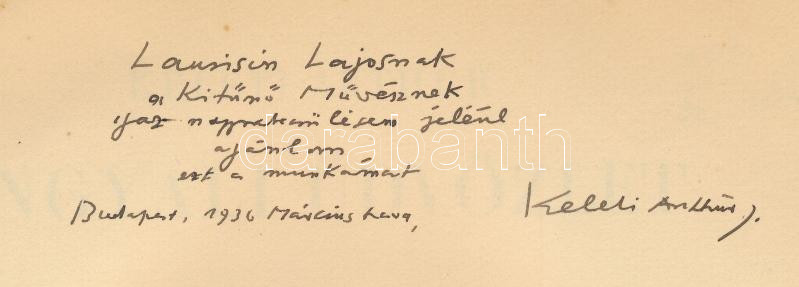 Laurisin Lajosnak
a Kitűnő Művésznek
igaz nagyrabecsülésem jeléül
ajánlom
ezt a munkámat
Budapest, 1936 Március hava,
Keleti Arthur
darabanth